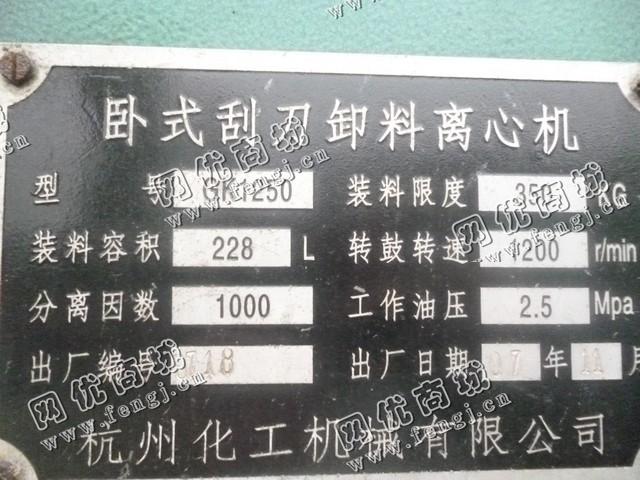 卧式刮刀卸料离心机
型 号 GK1250 装料限度 KG
装料容积 228 L 转鼓转速 1200 r/min
分离因数 1000 工作油压 2.5 Mpa
出厂编号 718 出厂日期 07 年 11 月
杭州化工机械有限公司
网优商城
www.fengj.cn
网优商城
www.fengj.cn
网优商城
www.fengj.cn
网优商城
www.fengj.cn